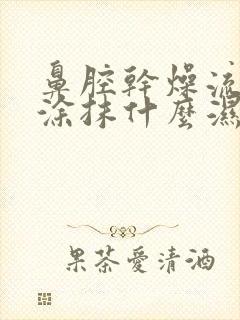 鼻腔幹燥流
涂抹什麼濕
果茶愛清酒